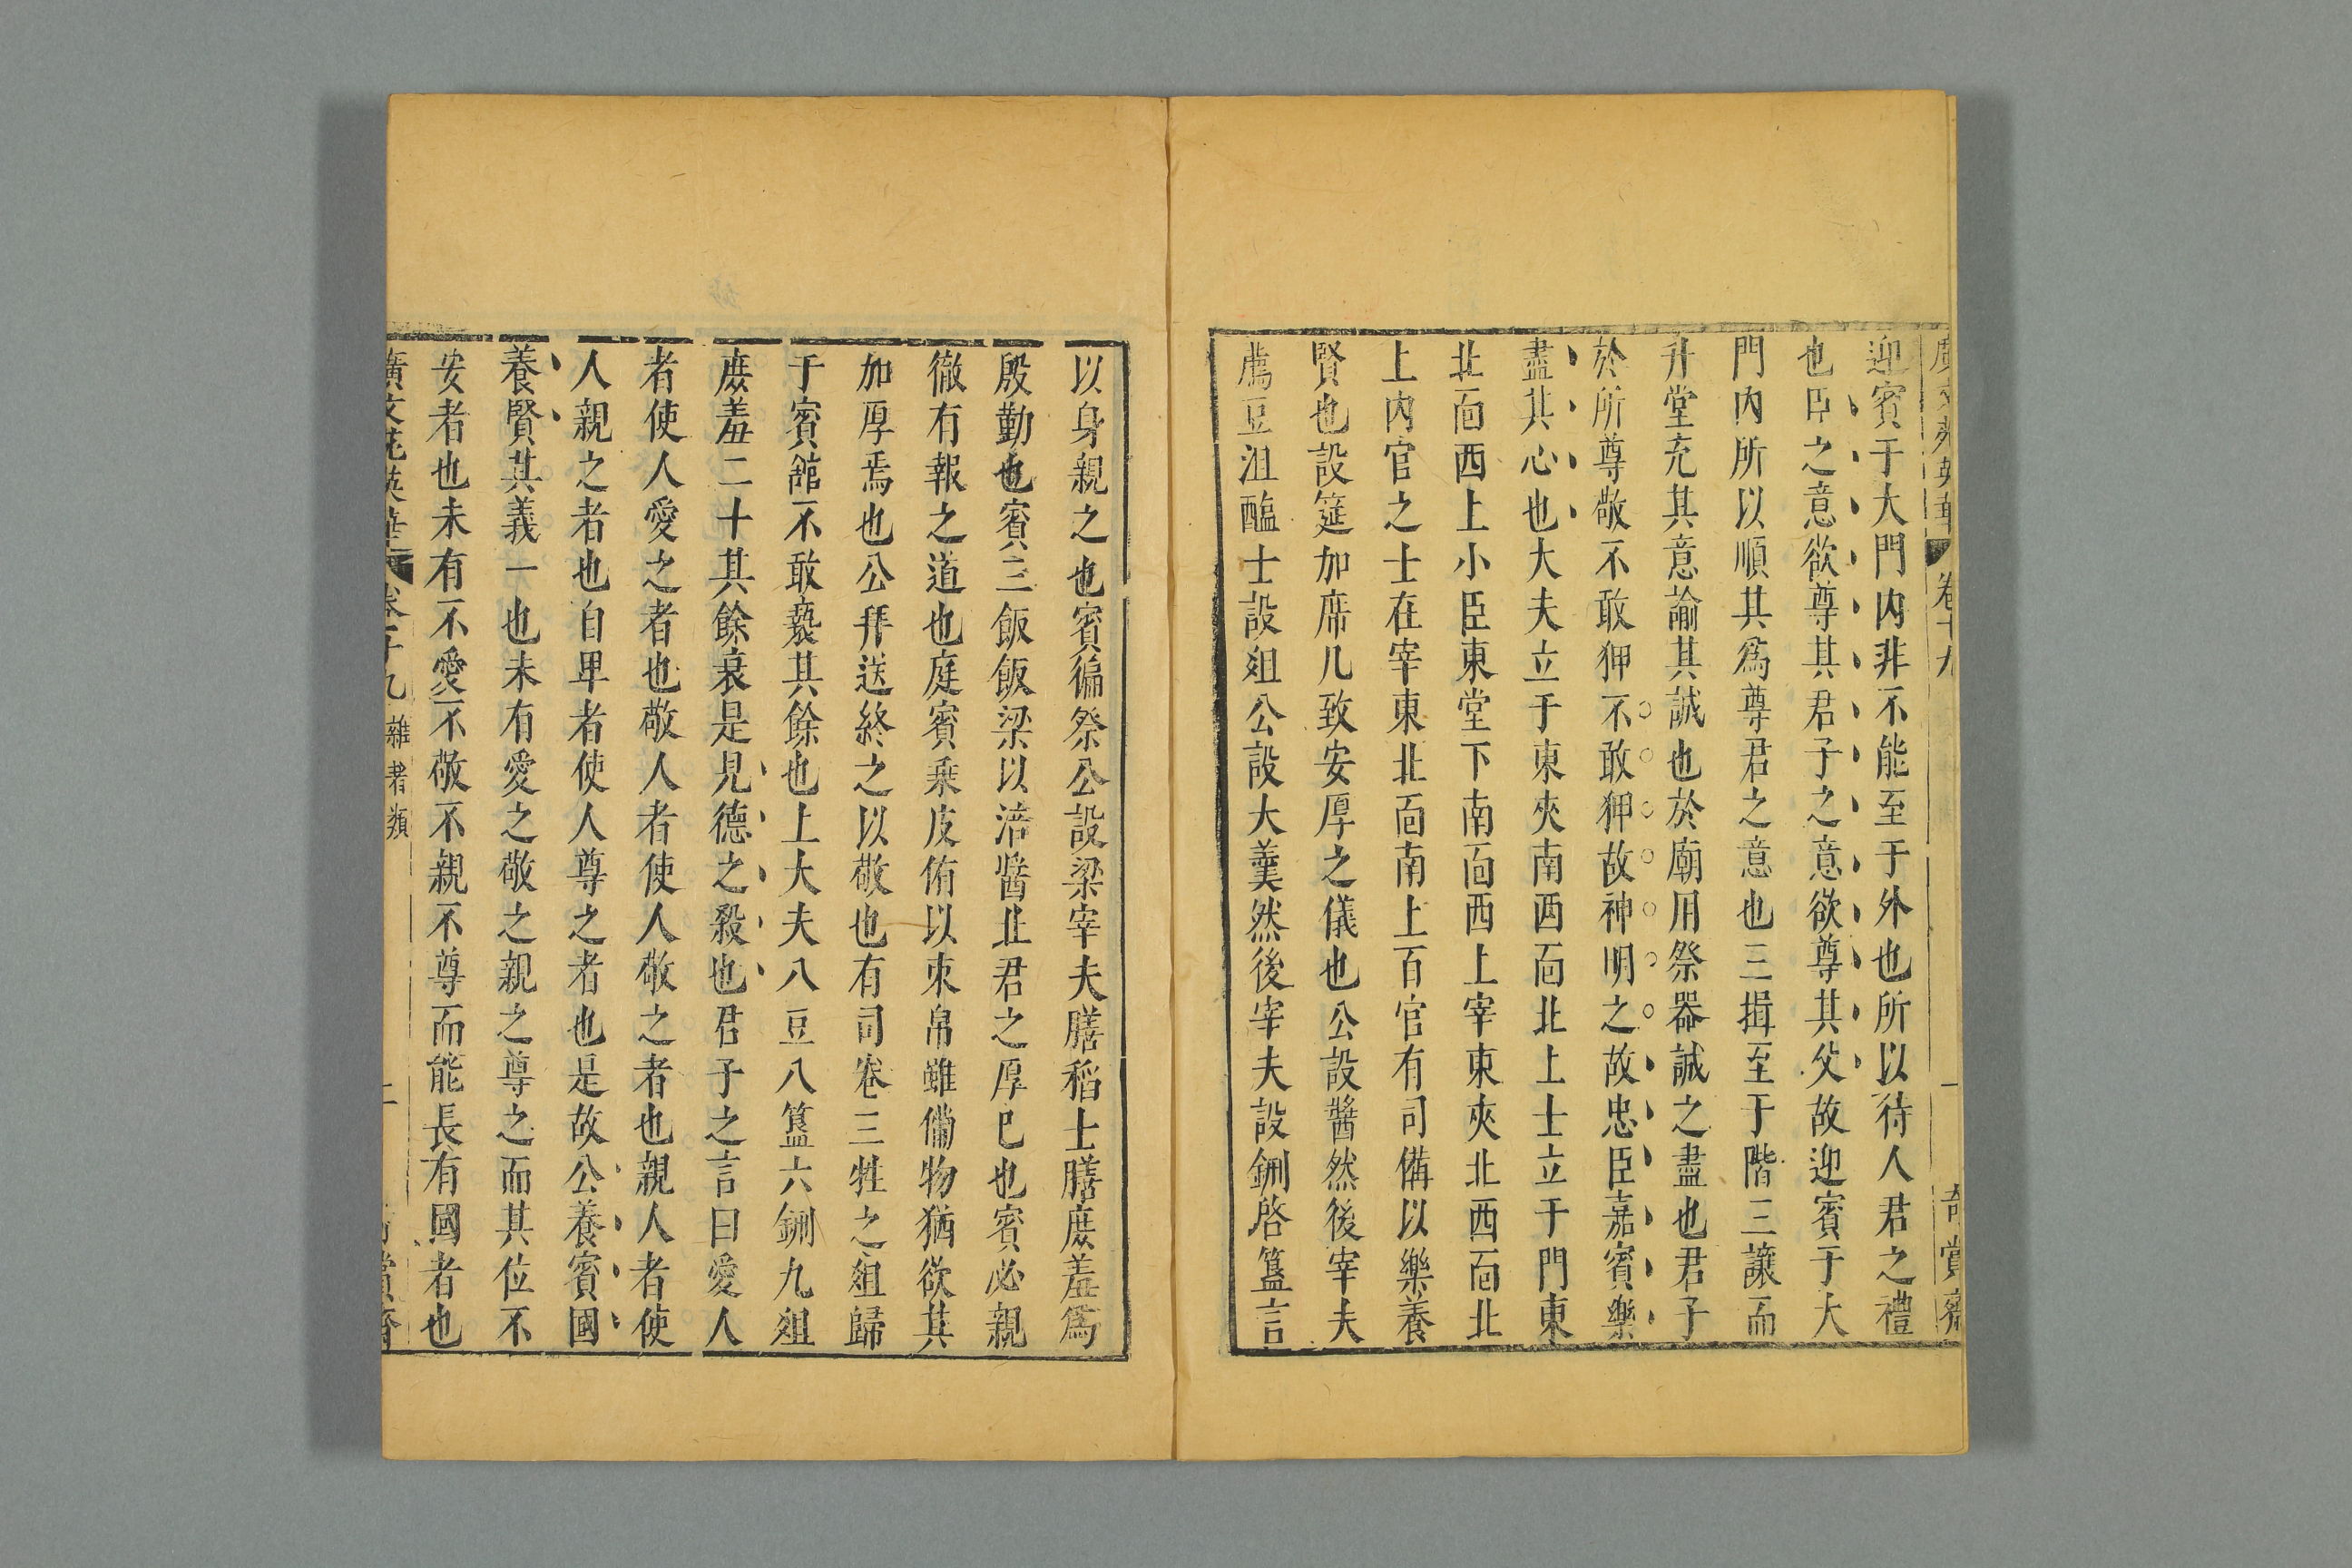 廣文苑英華 卷十九 一 奇賞齋
迎賓于大門内非不能至于外也所以待人君之禮
也臣之意欲尊其君子之意欲尊其父故迎賓于大
門内所以順其爲尊君之意也三揖至于階三讓而
升堂充其意諭其誠也於廟用祭器誠之盡也君子
於所尊敬不敢狎不敢狎故神明之故忠臣嘉賓樂
盡其心也大夫立于東夾南西面北上士立于門東
北面西上小臣東堂下南面西上宰東夾北西面北
上内官之士在宰東北面南上百官有司備以樂養
賢也設筵加席几致安厚之儀也公設醬然後宰夫
薦豆沮醢士設爼公設大羹然後宰夫設鉶啓簋言
以身親之也賓徧祭公設梁宰夫膳稻士膳庶羞爲
殷勤也賓三飯飯梁以湆醬北君之厚巳也賓必親
徹有報之道也庭賓乗皮侑以束帛雖備物猶欲其
加厚焉也公拜送終之以敬也有司卷三牲之爼歸
于賓館不敢褻其餘也上大夫八豆八簋六鉶九爼
庶羞二十其餘衰是見德之殺也君子之言曰愛人
者使人愛之者也敬人者使人敬之者也親人者使
人親之者也自卑者使人尊之者也是故公養賓國
養賢其義一也未有愛之敬之親之尊之而其位不
安者也未有不愛不敬不親不尊而能長有國者也
廣文苑英華 卷十九 雜著類 二 奇賞齋